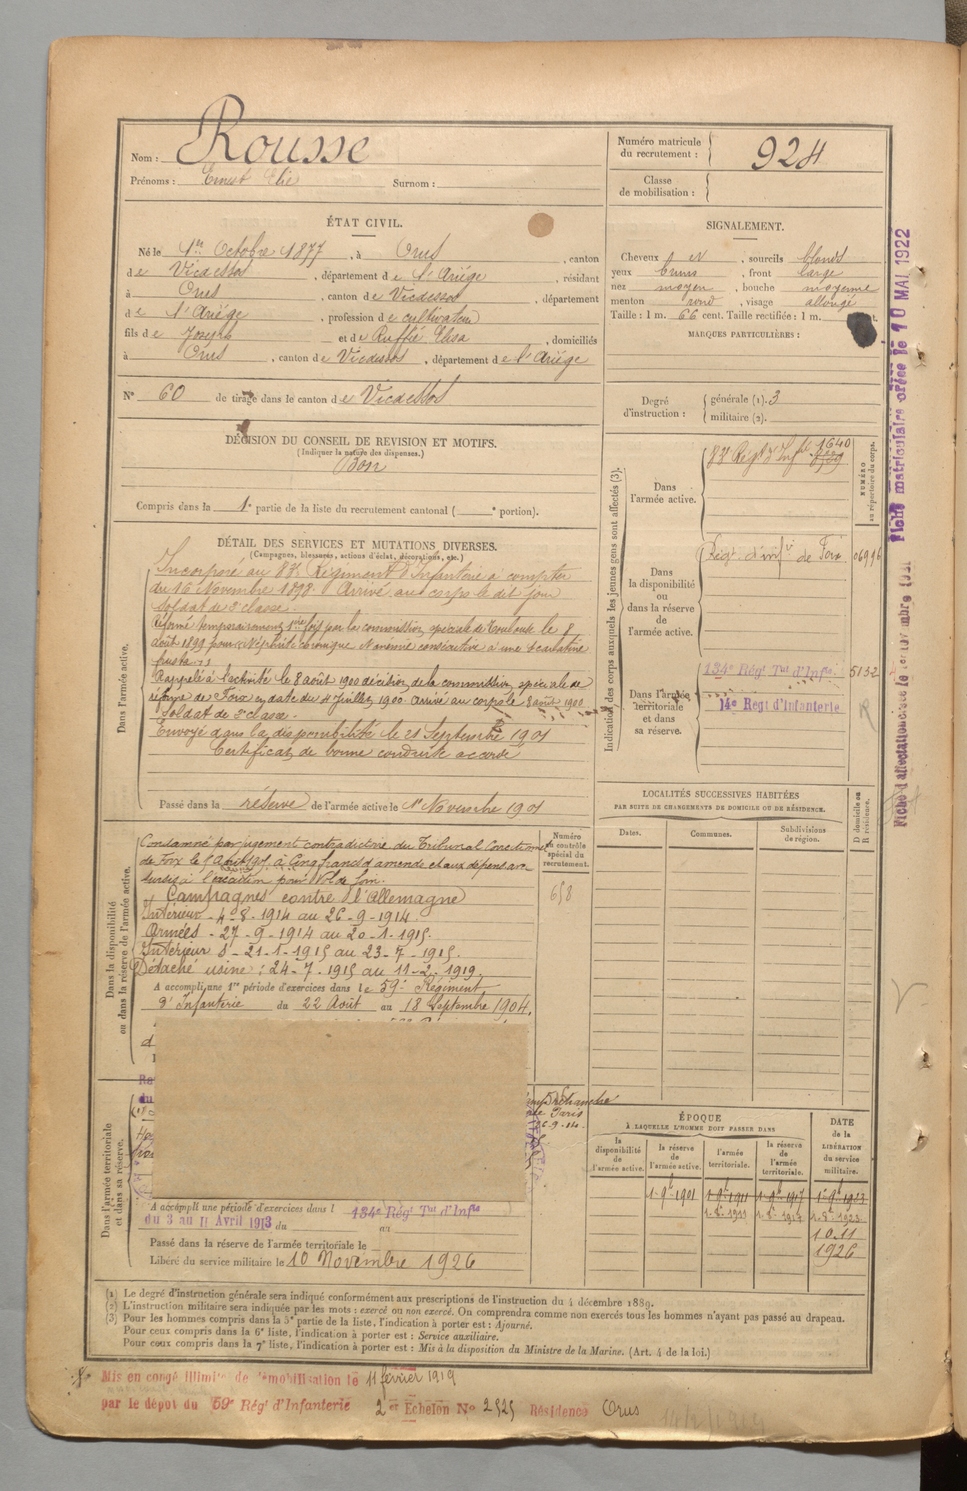 Nom : Rousse
Prénoms : Ernest Elie Surnom :
Numéro matricule
du recrutement : 924
Classe
de mobilisation :
ÉTAT CIVIL.
Né le 1er Octobre 1877, à Orus, canton
de Vicdessos, département de l'Ariége, résidant
à Orus, canton de Vicdessos, département
de l'Ariége, profession de cultivateur
fils de Joseph et de Ruffié Elisa, domiciliés
à Orus, canton de Vicdessos, département de l'Ariége
SIGNALEMENT.
Cheveux et, sourcils blonds
yeux bruns, front large
nez moyen, bouche moyenne
menton rond, visage allongé
Taille : 1 m. 66 cent. Taille rectifiée : 1 m.
MARQUES PARTICULIÈRES :
N° 60 de tirage dans le canton de Vicdessos
Degré
d'instruction :
générale (1). 3
militaire (2).
DÉCISION DU CONSEIL DE REVISION ET MOTIFS.
(Indiquer la nature des dispenses.)
Bon
Compris dans la 1e partie de la liste du recrutement cantonal ( e portion).
DÉTAIL DES SERVICES ET MUTATIONS DIVERSES.
(Campagnes, blessures, actions d'éclat, décorations, etc.)
Dans l'armée active.
Incorporé au Régiment d'Infanterie à compter
du 16 Novembre 1898. Arrivé au corps le dit jour
soldat de 2e classe.
Réformé temporairement 1ere fois par la commission spéciale de Toulouse le 8
août 1899 pour Néphrite chronique anémie consécutive à une Scarlatine
fruste
Rappelé à l'activité le 8 août 1900 décision de la commission spéciale de
réforme de Foix en date du 4 Juillet 1900 arrivé au corps le 8 août 1900
Soldat de 2e classe.
Envoyé dans la disponibilité le 21 Septembre 1901
Certificat de bonne conduite accordé
Passé dans la réserve de l'armée active le 1er Novembre 1901
Indication des corps auxquels les jeunes gens sont affectés (3).
NUMÉRO
au répertoire du corps.
Dans
l'armée active.
Régt d'Infie 1640
Dans
la disponibilité
ou
dans la réserve
de
l'armée active.
Régt d'infie de Foix
Dans l'armée
territoriale
et dans
sa réserve.
134e Régt Tal d'Infie 5132
14e Régt d'Infanterie
LOCALITÉS SUCCESSIVES HABITÉES
PAR SUITE DE CHANGEMENTS DE DOMICILE OU DE RÉSIDENCE.
Dates.
Communes.
Subdivisions
de région.
D domicile ou
R résidence.
Dans la disponibilité
ou dans la réserve de l'armée active.
Condamné par jugement contradictoire du Tribunal Correctionnel
de Foix le Août à Cinq francs d'amende et aux dépens avec
sursis à l'exécution pour Vol de foin.
Campagnes contre l'Allemagne
Intérieur - 4-8-1914 au 26-9-1914.
Armées - 27-9-1914 au 20-1-1915.
Intérieur 21-1-1915 au 23-7-1915.
Détaché usine : 24-7-1915 au 11-2-1919.
A accompli une 1re période d'exercices dans le 59e Régiment
d'Infanterie du 22 Août au 18 Septembre 1904.
Numéro
au contrôle
spécial du
recrutement.
658
Dans l'armée territoriale
et dans sa réserve.
de Paris
A accompli une période d'exercices dans l 134e Régt Tal d'Infie
du 3 au 11 Avril 1913 du au
Passé dans la réserve de l'armée territoriale le
Libéré du service militaire le 10 Novembre 1926
ÉPOQUE
À LAQUELLE L'HOMME DOIT PASSER DANS
la
disponibilité
de
l'armée active.
la réserve
de
l'armée active.
l'armée
territoriale.
la réserve
de
l'armée
territoriale.
DATE
de la
LIBÉRATION
du service
militaire.
1-9bre 1901 1-9bre 1911 1-9bre 1917 1-9bre 1923
10.11
1926
(1) Le degré d'instruction générale sera indiqué conformément aux prescriptions de l'instruction du 4 décembre 1889.
(2) L'instruction militaire sera indiquée par les mots : exercé ou non exercé. On comprendra comme non exercés tous les hommes n'ayant pas passé au drapeau.
(3) Pour les hommes compris dans la 5e partie de la liste, l'indication à porter est : Ajourné.
Pour ceux compris dans la 6e liste, l'indication à porter est : Service auxiliaire.
Pour ceux compris dans la 7e liste, l'indication à porter est : Mis à la disposition du Ministre de la Marine. (Art. 4 de la loi.)
Mis en congé illimité de démobilisation le 11 février 1919
par le dépôt du 59e Régt d'Infanterie 2e Echelon No 2525 Résidence Orus
Fiche matriculaire créée le 10 MAI 1922